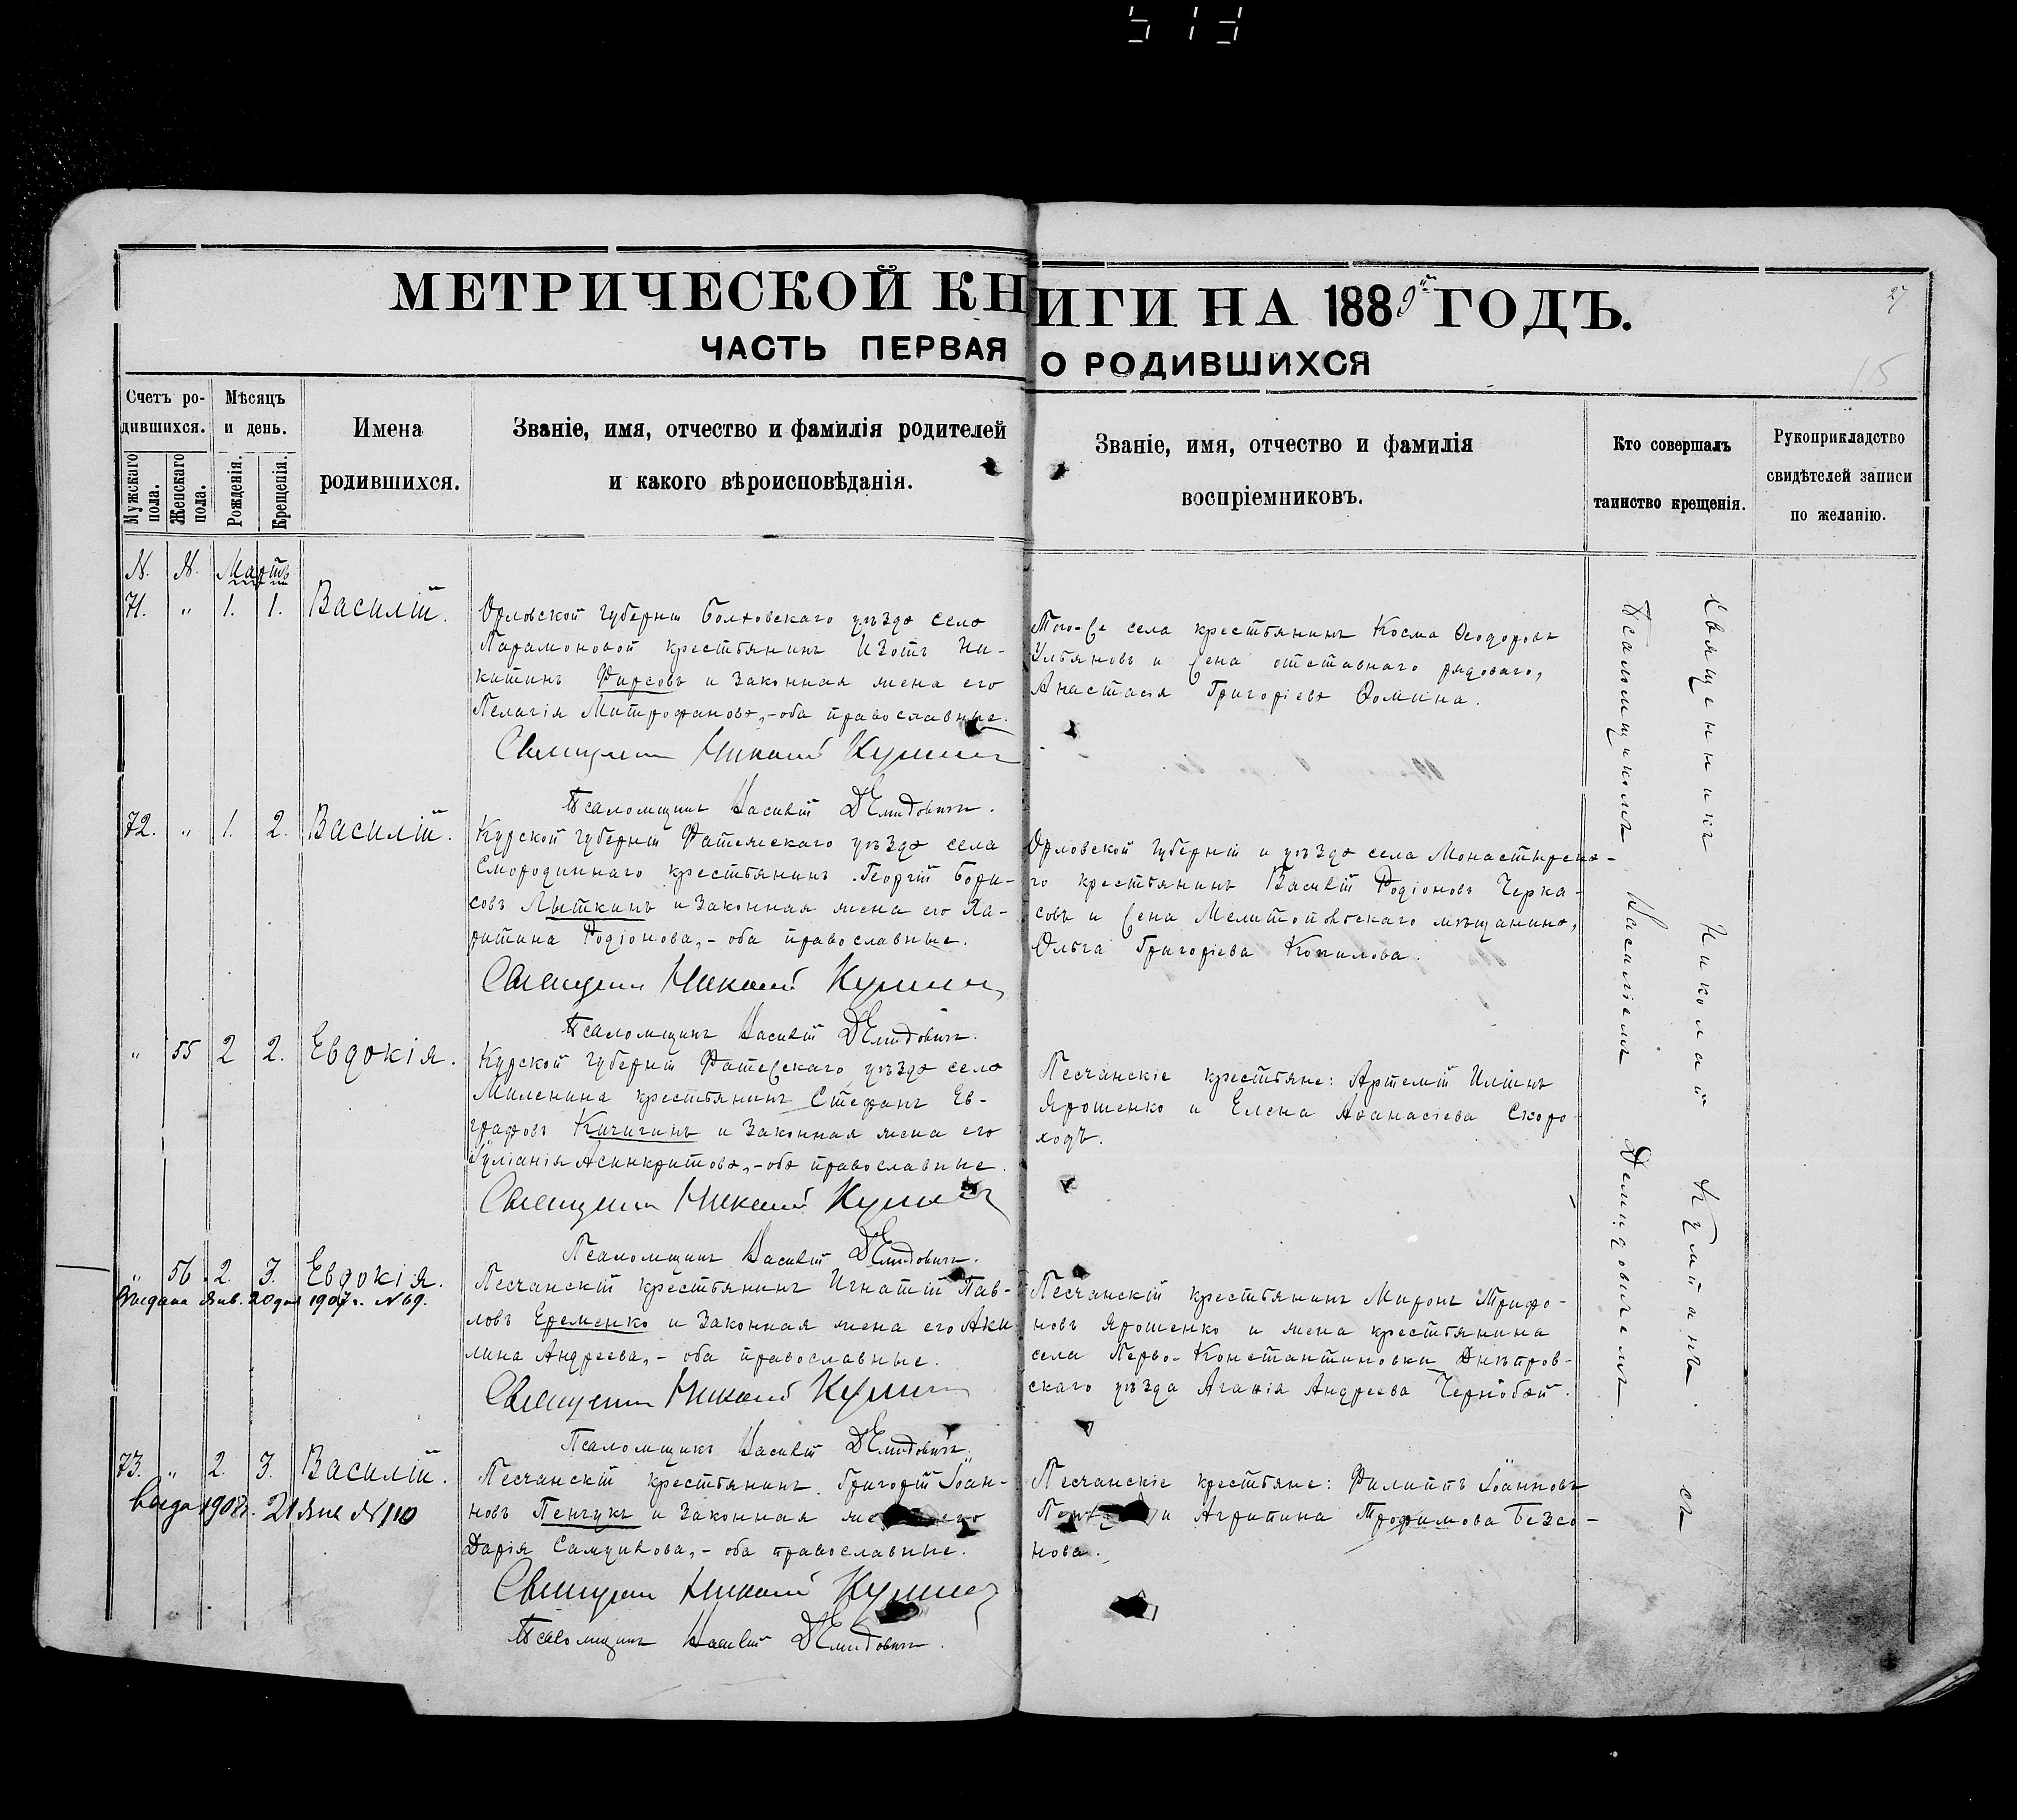 513
МЕТРИЧЕСКОЙ КНИГИ НА 1889й ГОДЪ.
27
ЧАСТЬ ПЕРВАЯ О РОДИВШИХСЯ
15
Счетъ родившихся.
Мужскаго пола.
Женскаго пола.
Мѣсяцъ и день.
Рожденія.
Крещенія.
Имена
родившихся.
Званіе, имя, отчество и фамилія родителей
и какого вѣроисповѣданія.
Званіе, имя, отчество и фамилія
воспріемниковъ.
Кто совершалъ
таинство крещенія.
Рукоприкладство
свидѣтелей записи
по желанію.
N. N. Мартъ
71. " 1. 1. Василій.
Орловской губерніи Болховскаго уѣзда села
Парамоновой крестьянинъ Изотъ Ни-
китинъ Фирсовъ и законная жена его
Пелагія Митрофанова,-оба православные.
Священникъ Николай
Псаломщикъ Василій Демидовичъ.
Того-же села крестьянинъ Косма Ѳеодоровъ
Ульяновъ и жена отставнаго рядоваго,
Анастасія Григоріева Ѳомина.
72. " 1. 2. Василій.
Курской губерніи Фатежскаго уѣзда села
Смородиннаго крестьянинъ Георгій Бори-
совъ Лыткинъ и законная жена его Ха-
ритина Родіонова,- оба православные.
Священникъ Николай
Псаломщикъ Василій Демидовичъ.
Орловской губерніи и уѣзда села Монастырска-
го крестьянинъ Василій Родіоновъ Черка-
совъ и жена Мелитопольскаго мѣщанина,
Ольга Григоріева Копилова.
" 55 2 2. Евдокія.
Курской губерніи Фатежскаго уѣзда села
Миленина крестьянинъ Стефанъ Ев-
графовъ Кичигинъ и законная жена его
Іуліанія Асинкритова,-оба православные.
Священникъ Николай
Псаломщикъ Василій Демидовичъ.
Песчанскіе крестьяне: Артемій Илiинъ
Ярошенко и Елена Аѳанасіева Скоро
ходъ.
" 56 2. 3. Евдокія.
Выдана Янв. 20 дня 1907 г. N 69.
Песчанскій крестьянинъ Игнатій Пав-
ловъ Еременко и законная жена его Аки
лина Андреева,- оба православные.
Священникъ Николай
Псаломщикъ Василій Демидовичъ.
Песчанскій крестьянинъ Миронъ Трифо-
новъ Ярошенко и жена крестьянина
села Перво-Константиновки Днѣпров-
скаго уѣзда Агаѳія Андреева Чернобай.
73. " 2. 3. Василій.
1908 г. 21 Янв N 110
Песчанскій крестьянинъ Григорій Іоан-
новъ Пенчукъ и законная жена его
Дарія Самуилова,- оба православные.
Священникъ Николай
Псаломщикъ Василій Демидовичъ.
Песчанскіе крестьяне: Филиппъ Іоанновъ
и Агрипина Трофимова Безсо-
нова.
Священникъ Николай съ
Псаломщикомъ Василіемъ Демидовичемъ.